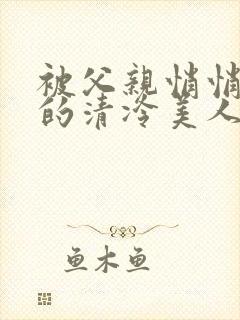 被父親悄悄
的清冷美人
鱼木鱼